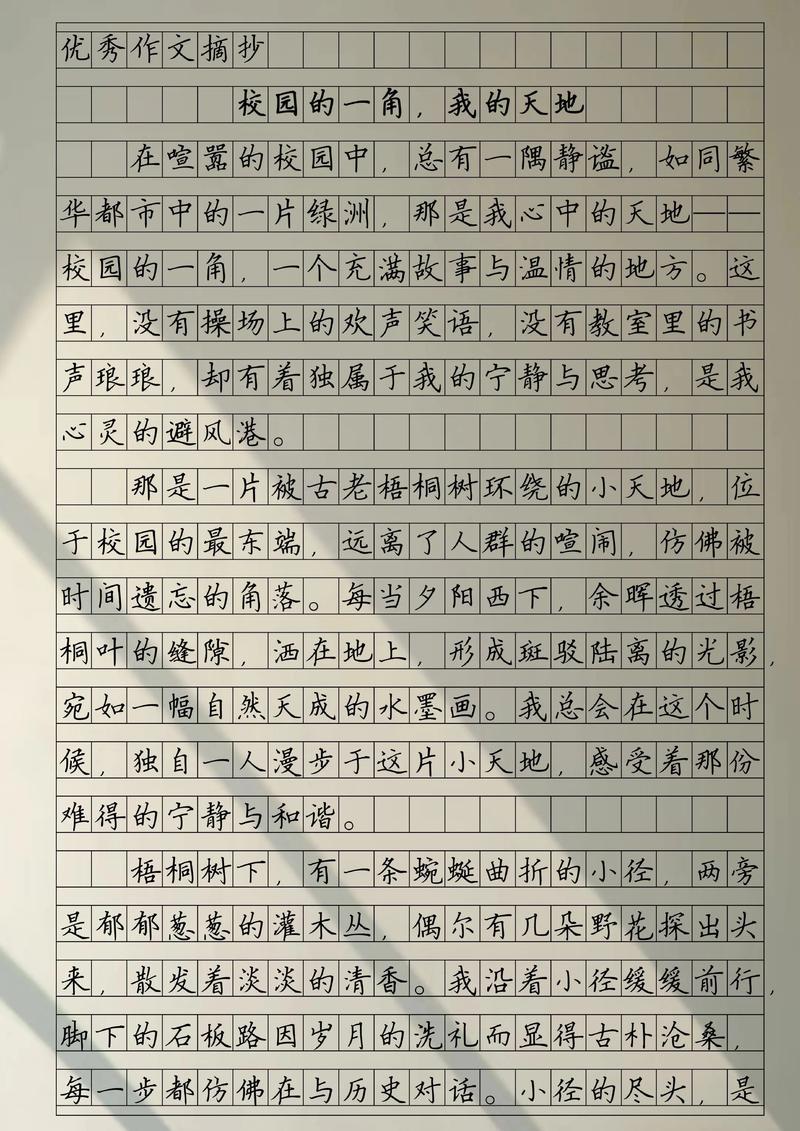 优秀作文摘抄
校园的一角，我的天地
在喧嚣的校园中，总有一隅静谧，如同繁
华都市中的一片绿洲，那是我心中的天地——
校园的一角，一个充满故事与温情的地方。这
里，没有操场上的欢声笑语，没有教室里的书
声琅琅，却有着独属于我的宁静与思考，是我
心灵的避风港。
那是一片被古老梧桐树环绕的小天地，位
于校园的最东端，远离了人群的喧闹，仿佛被
时间遗忘的角落。每当夕阳西下，余晖透过梧
桐叶的缝隙，洒在地上，形成斑驳陆离的光影，
宛如一幅自然天成的水墨画。我总会在这个时
候，独自一人漫步于这片小天地，感受着那份
难得的宁静与和谐。
梧桐树下，有一条蜿蜒曲折的小径，两旁
是郁郁葱葱的灌木丛，偶尔有几朵野花探出头
来，散发着淡淡的清香。我沿着小径缓缓前行，
脚下的石板路因岁月的洗礼而显得古朴沧桑，
每一步都仿佛在与历史对话。小径的尽头，是